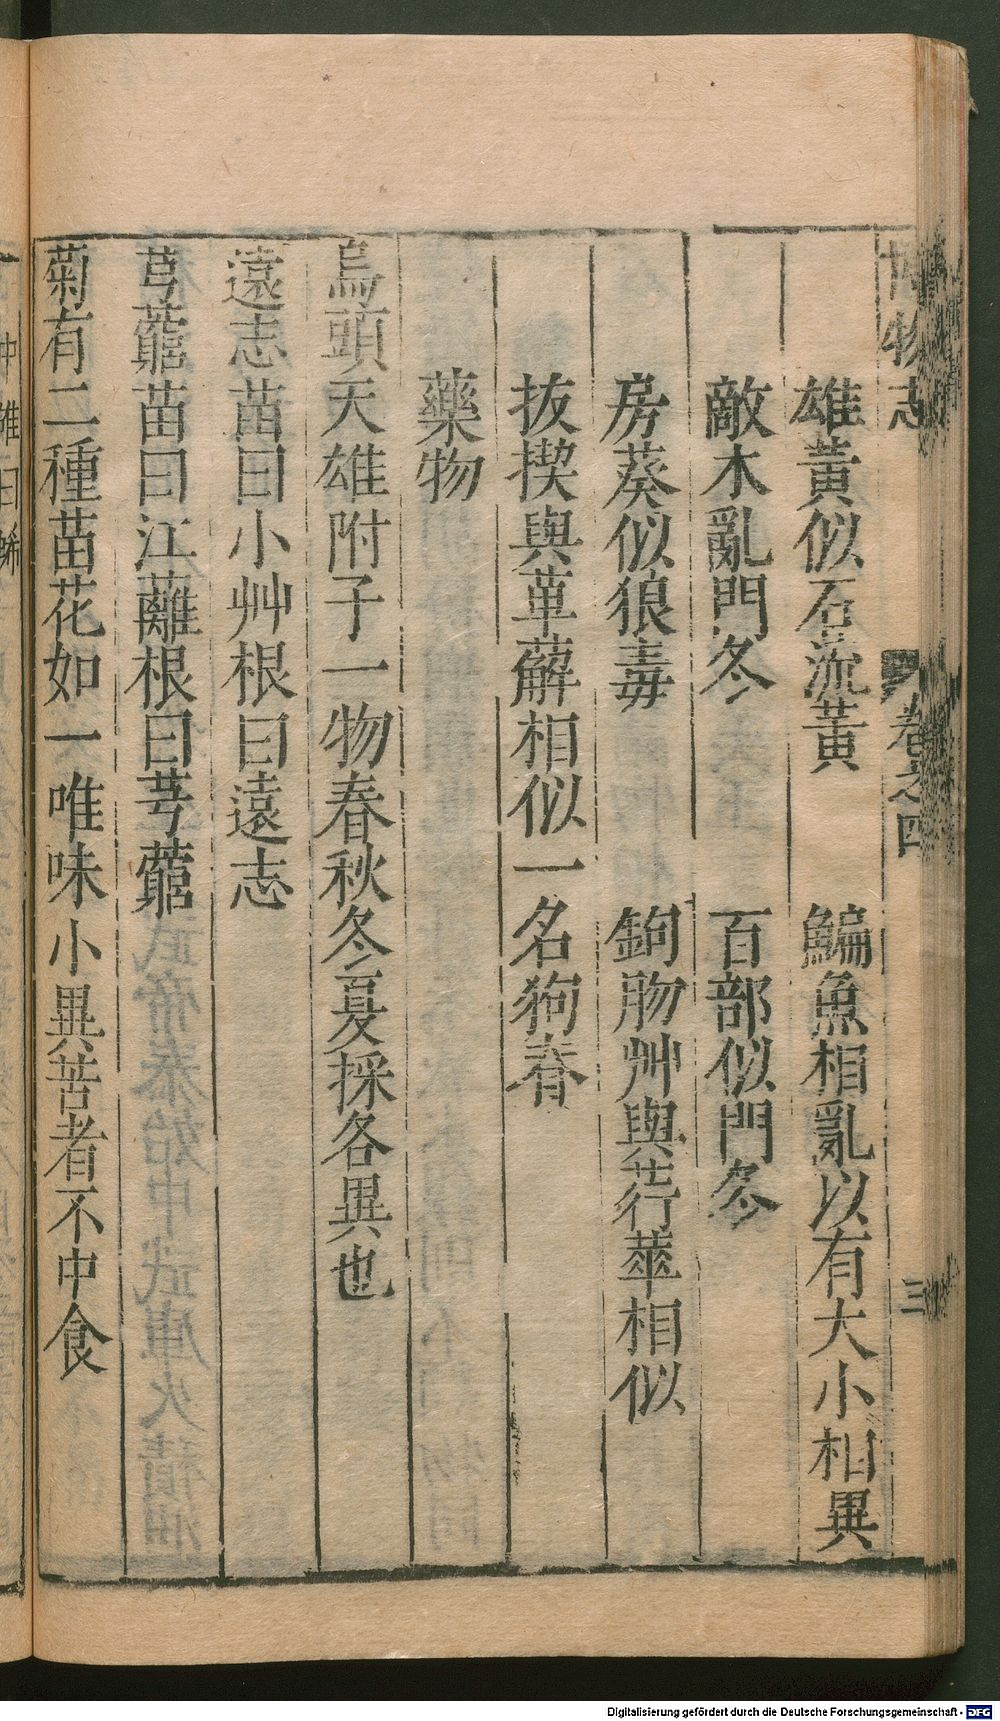 博物志 卷之四 三
雄黃似石流黃 鯿魚相亂以有大小相異
敵木亂門冬 百部似門冬
房葵似狼毒 鉤吻艸與荇華相似
拔揳與萆薢相似一名狗脊
藥物
烏頭天雄附子一物春秋冬夏採各異也
遠志苗曰小艸根曰遠志
芎藭苗曰江蘺根曰芎藭
菊有二種苗花如一唯味小異苦者不中食
Digitalisierung gefördert durch die Deutsche Forschungsgemeinschaft - DFG